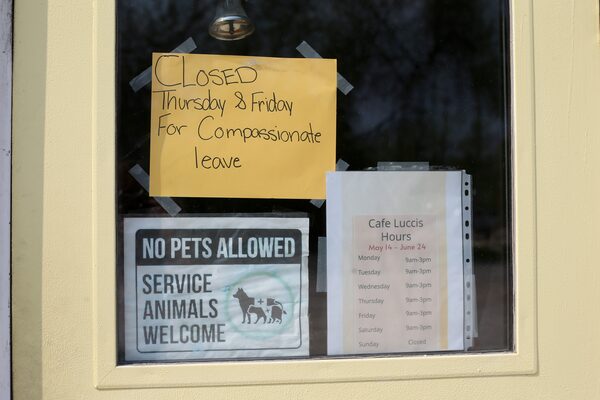 CLOSED
Thursday & Friday
For Compassionate
leave
NO PETS ALLOWED
SERVICE
ANIMALS
WELCOME
Cafe Luccis
Hours
May 14 - June 24
Monday 9am-3pm
Tuesday 9am-3pm
Wednesday 9am-3pm
Thursday 9am-3pm
Friday 9am-3pm
Saturday 9am-3pm
Sunday Closed